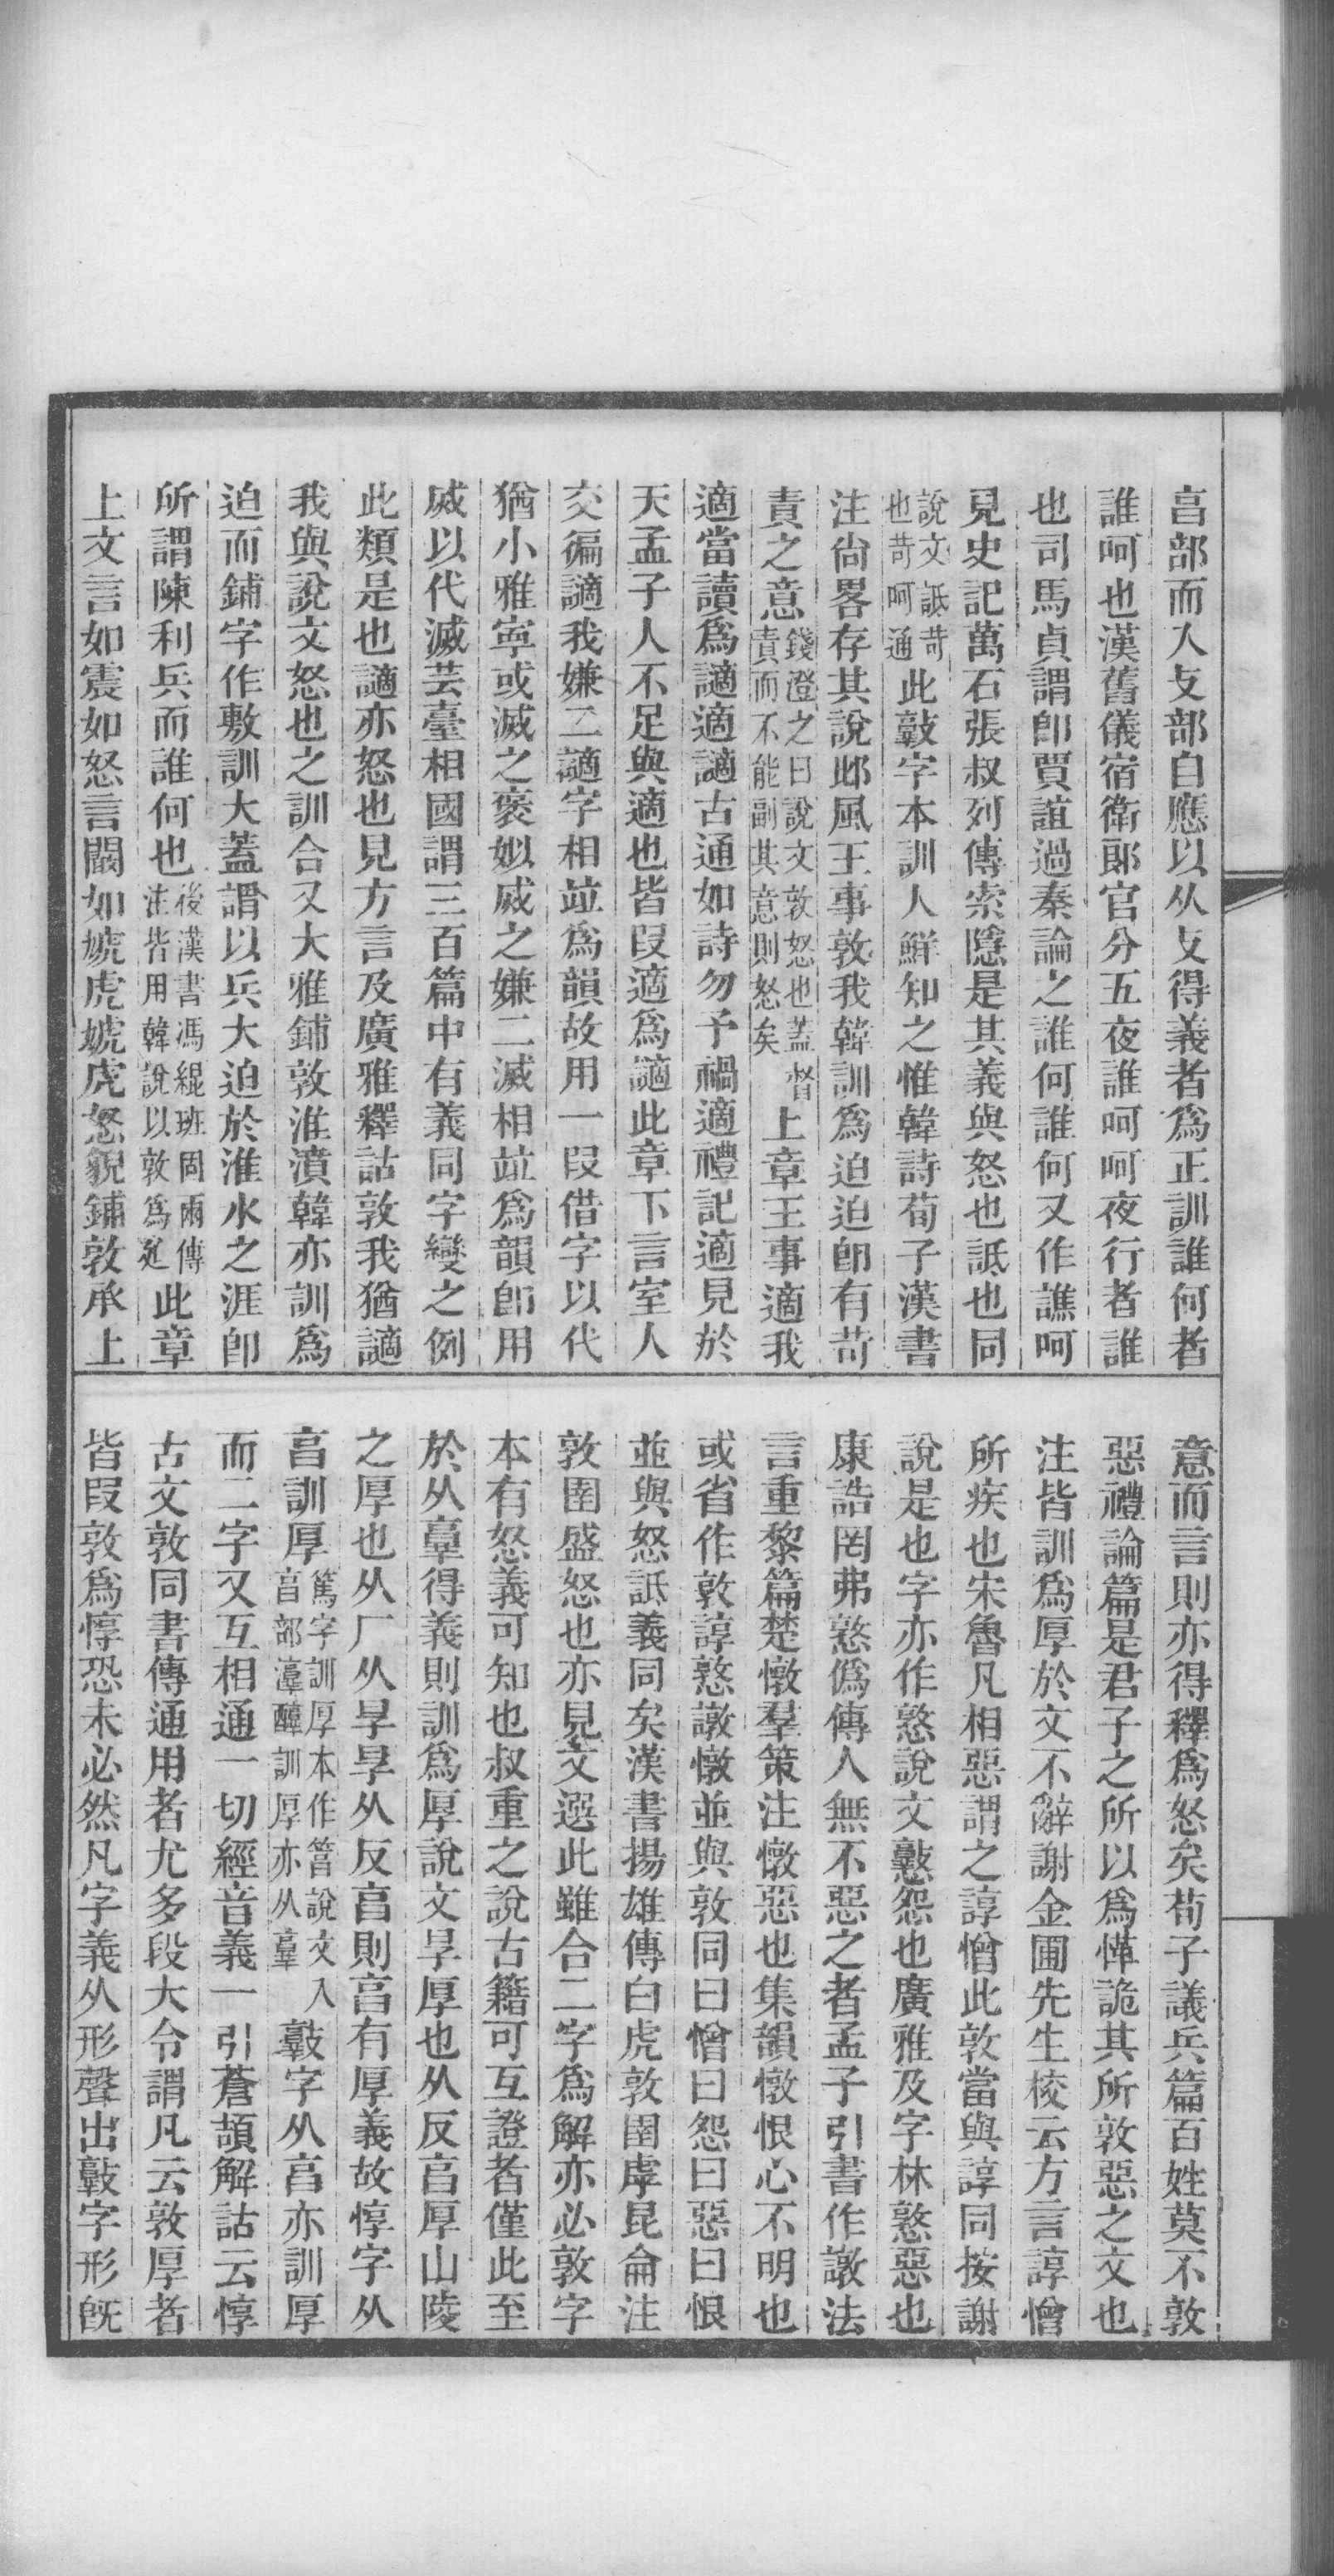 亯部而入攴部自應以从攴得義者爲正訓誰何者
誰呵也漢舊儀宿衛郎官分五夜誰呵呵夜行者誰
也司馬貞謂卽賈誼過秦論之誰何誰何又作譙呵
見史記萬石張叔列傳索隱是其義與怒也詆也同
說文詆苛也苛呵通此𢾭字本訓人鮮知之惟韓詩荀子漢書
注尙畧存其說邶風王事敦我韓訓爲迫迫卽有苛
責之意錢澄之曰說文敦怒也蓋督責而不能副其意則怒矣上章王事適我
適當讀爲讁適讁古通如詩勿予禍適禮記適見於
天孟子人不足與適也皆叚適爲讁此章下言室人
交徧讁我嫌二讁字相竝爲韻故用一叚借字以代
猶小雅寧或滅之褒姒烕之嫌二滅相竝爲韻卽用
烕以代滅芸臺相國謂三百篇中有義同字變之例
此類是也讁亦怒也見方言及廣雅釋詁敦我猶讁
我與說文怒也之訓合又大雅鋪敦淮濆韓亦訓爲
迫而鋪字作敷訓大蓋謂以兵大迫於淮水之涯卽
所謂陳利兵而誰何也後漢書馮緄班固兩傳注皆用韓說以敦爲迫此章
上文言如震如怒言闞如虓虎虓虎怒貌鋪敦承上
意而言則亦得釋爲怒矣荀子議兵篇百姓莫不敦
惡禮論篇是君子之所以爲愅詭其所敦惡之文也
注皆訓爲厚於文不辭謝金圃先生校云方言諄憎
所疾也宋魯凡相惡謂之諄憎此敦當與諄同按謝
說是也字亦作憝說文憝怨也廣雅及字林憝惡也
康誥罔弗憝僞傳人無不惡之者孟子引書作譈法
言重黎篇楚憞羣策注憞惡也集韻憞恨心不明也
或省作敦諄憝譈憞並與敦同曰憎曰怨曰惡曰恨
並與怒詆義同矣漢書揚雄傳白虎敦圉虖昆侖注
敦圉盛怒也亦見文選此雖合二字爲解亦必敦字
本有怒義可知也叔重之說古籍可互證者僅此至
於从𦎧得義則訓爲厚說文㫗厚也从反亯厚山陵
之厚也从厂从㫗㫗从反亯則亯有厚義故惇字从
亯訓厚篤字訓厚本作䈞說文入亯部𤀉醇訓厚亦从𦎧𢾭字从亯亦訓厚
而二字又互相通一切經音義一引蒼頡解詁云惇
古文敦同書傳通用者尤多段大令謂凡云敦厚者
皆叚敦爲惇恐未必然凡字義从形聲出𢾭字形旣